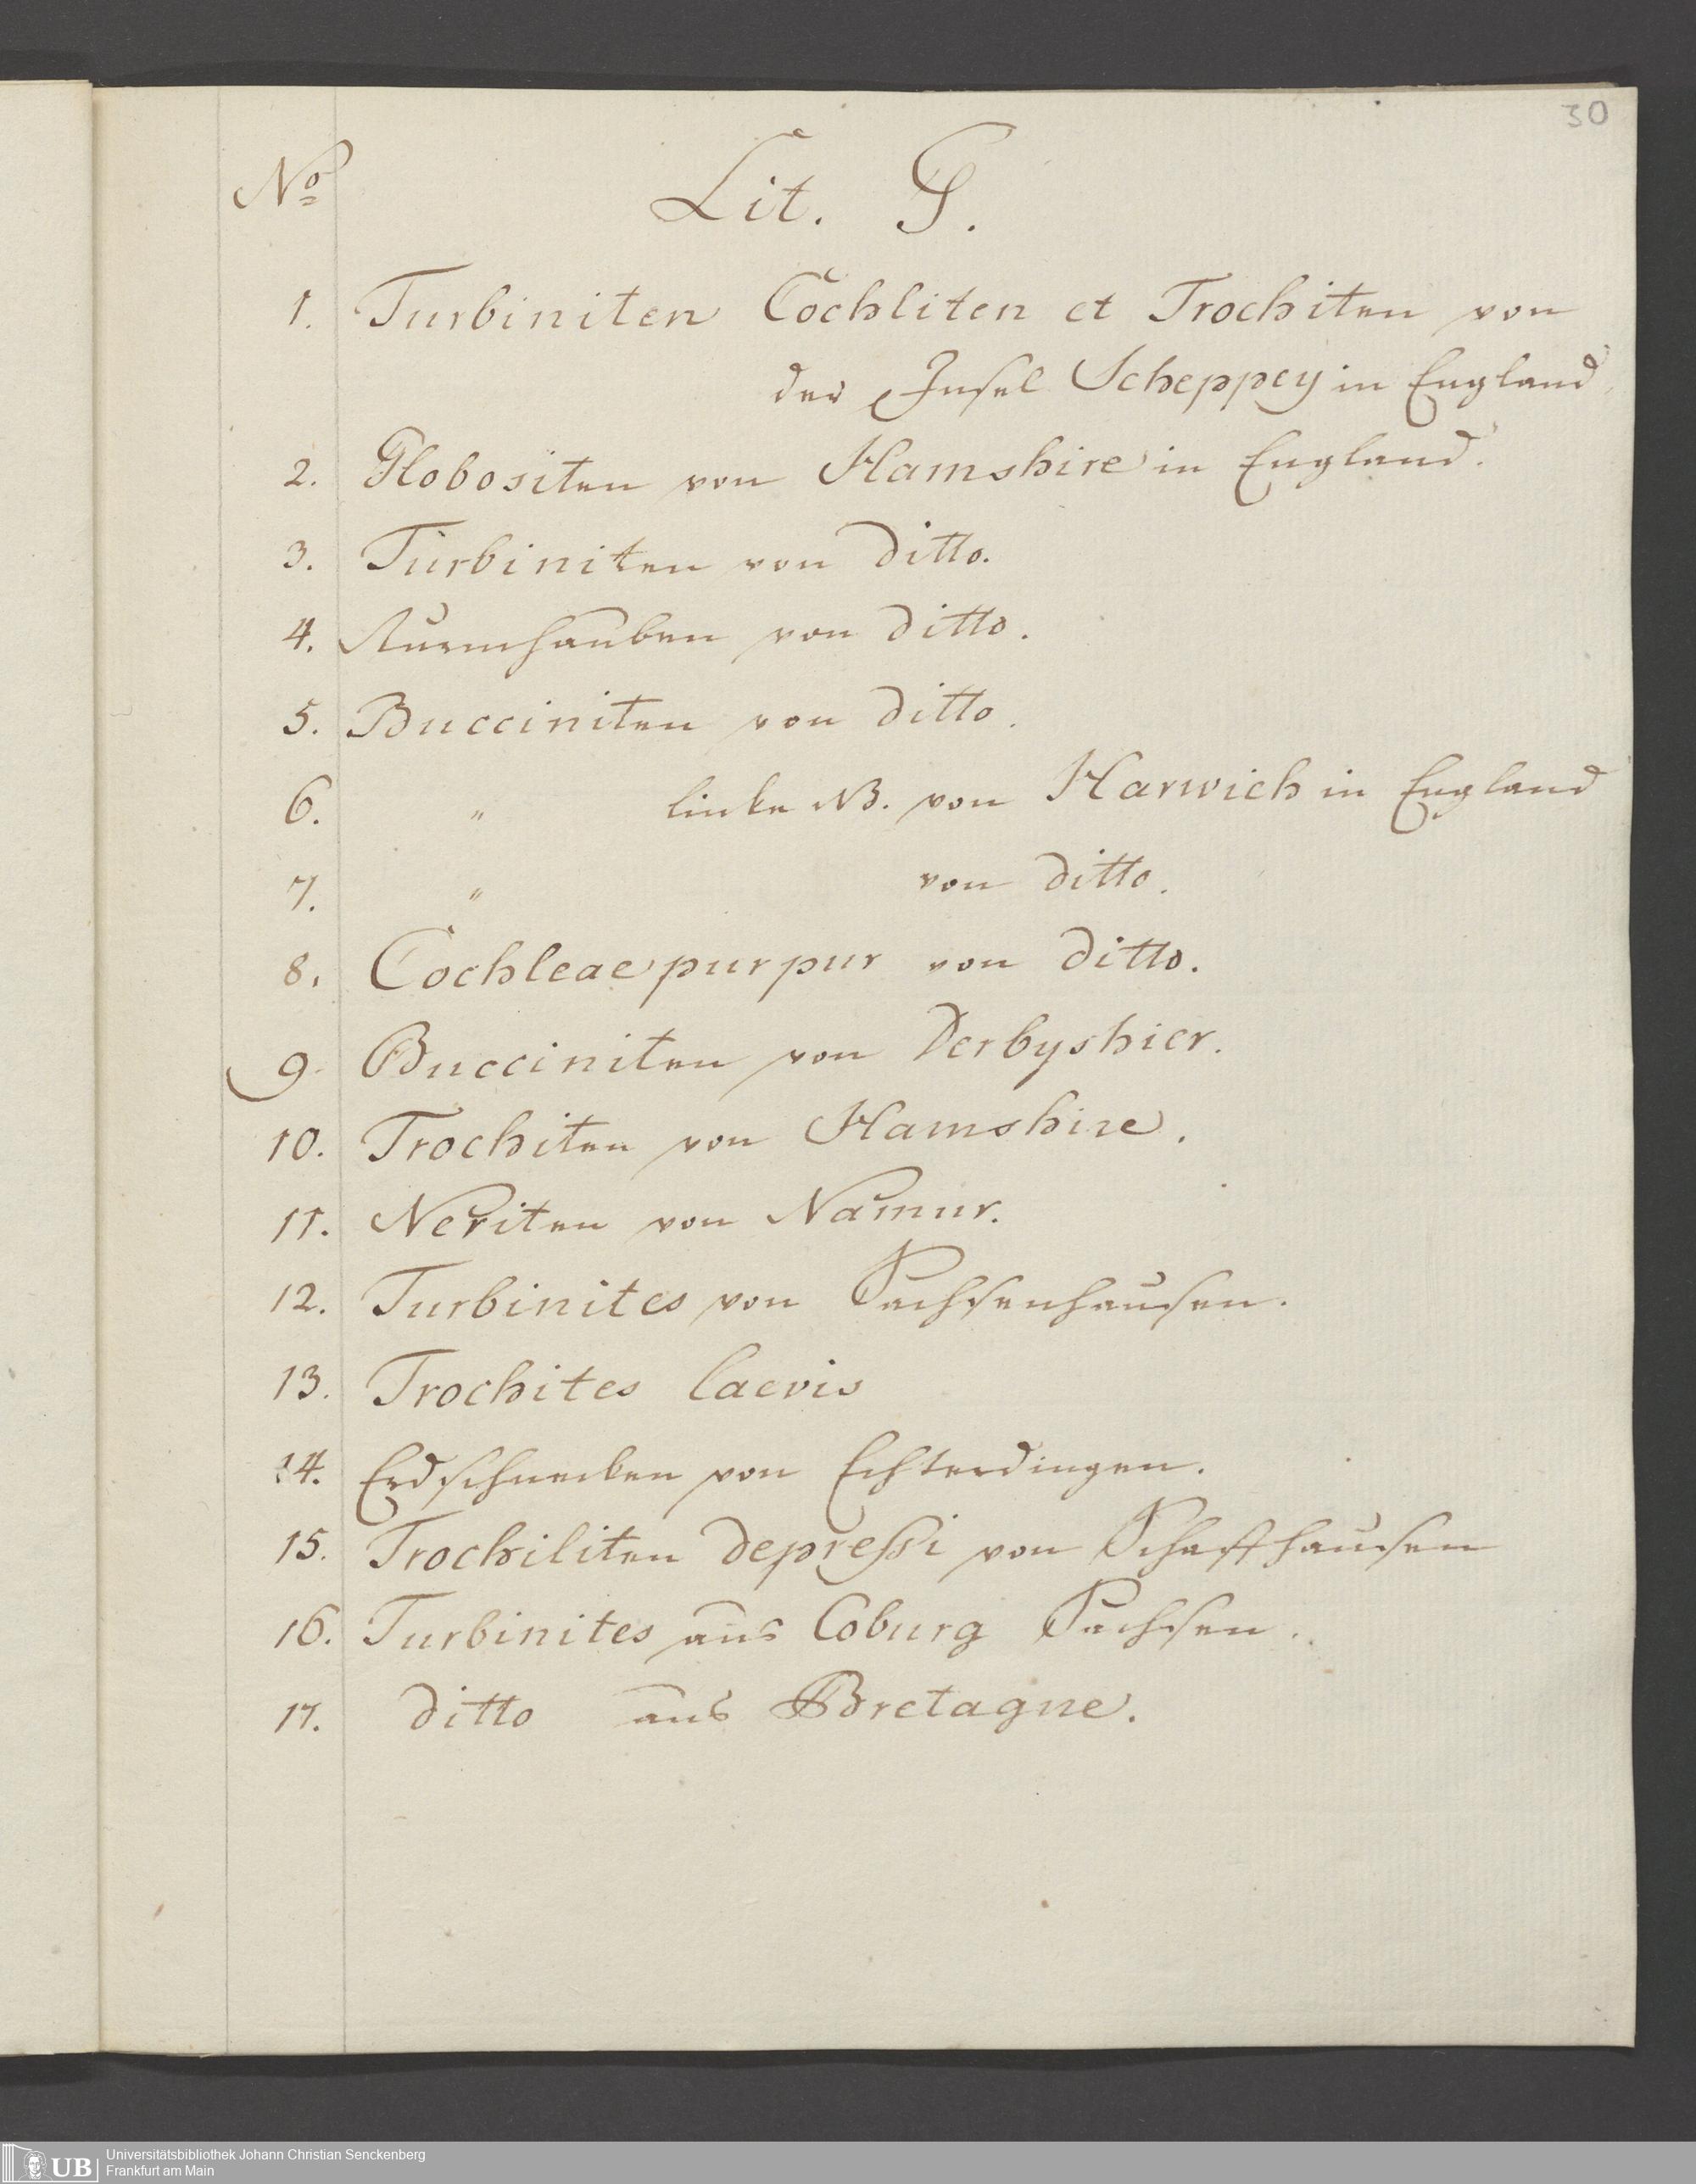 30
No
Lit. G.
1. Turbiniten Cochliten et Trochiten von
der Insel Scheppey in England
2. Globositen von Hamshire in England.
3. Turbiniten von ditto.
4. Sturmhauben von ditto.
5. Bucciniten von ditto.
6. " linke NB. von Harwich in England
7. " von ditto.
8. Cochleae purpur von ditto.
9. Bucciniten von Derbyshier.
10. Trochiten von Hamshire.
11. Neriten von Namur.
12. Turbinites von Sachsenhausen.
13. Trochites laevis
14. Erdschnecken von Echterdingen.
15. Trochiliten depressi von Schaffhausen
16. Turbinites aus Coburg Sachsen.
17. ditto aus Bretagne.
UB Universitätsbibliothek Johann Christian Senckenberg
Frankfurt am Main